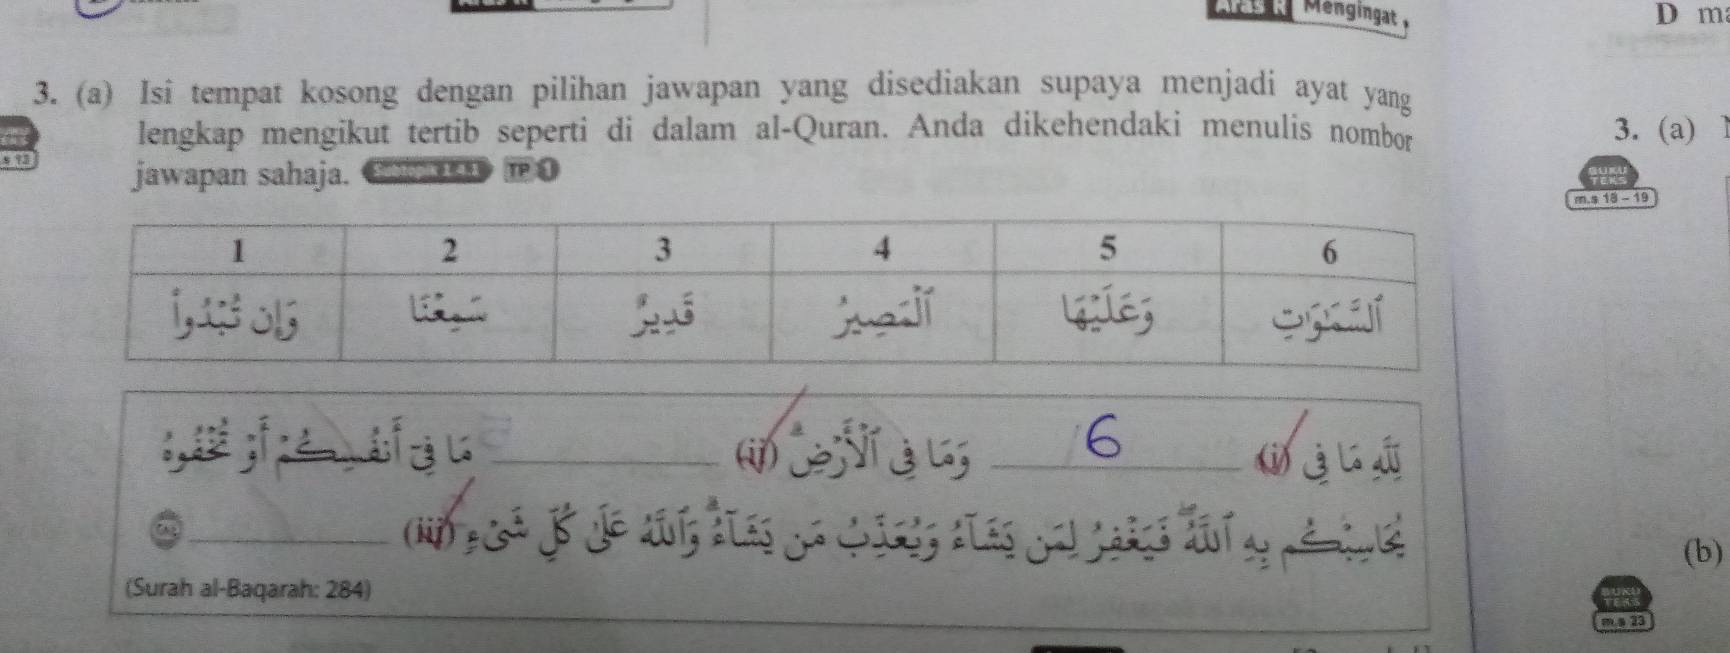 Aras R Mengingat
D
3. (a) Isi tempat kosong dengan pilihan jawapan yang disediakan supaya menjadi ayat yang
lengkap mengikut tertib seperti di dalam al-Quran. Anda dikehendaki menulis nombor
jawapan sahaja. Subtopik 1.4.1 TP 1
1 2 3 4 5 6
وَإِن تُبْدُوا۟ سَمِعْنَا قَدِيرٌ ٱلْمَصِيرُ وَعَلَيْهَا ٱلسَّمَٰوَٰتِ
لِلَّهِ مَا فِى (i) 6 وَمَا فِى ٱلْأَرْضِ ۗ (ii) مَا فِىٓ أَنفُسِكُمْ أَوْ تُخْفُوهُ
يُحَاسِبْكُم بِهِ ٱللَّهُ ۖ فَيَغْفِرُ لِمَن يَشَآءُ وَيُعَذِّبُ مَن يَشَآءُ ۗ وَٱللَّهُ عَلَىٰ كُلِّ شَىْءٍ (iii)
(Surah al-Baqarah: 284)
3. (a)
BUKU
TEKS
m.s 18 – 19
(b)
BUKU
TEKS
m.s 23